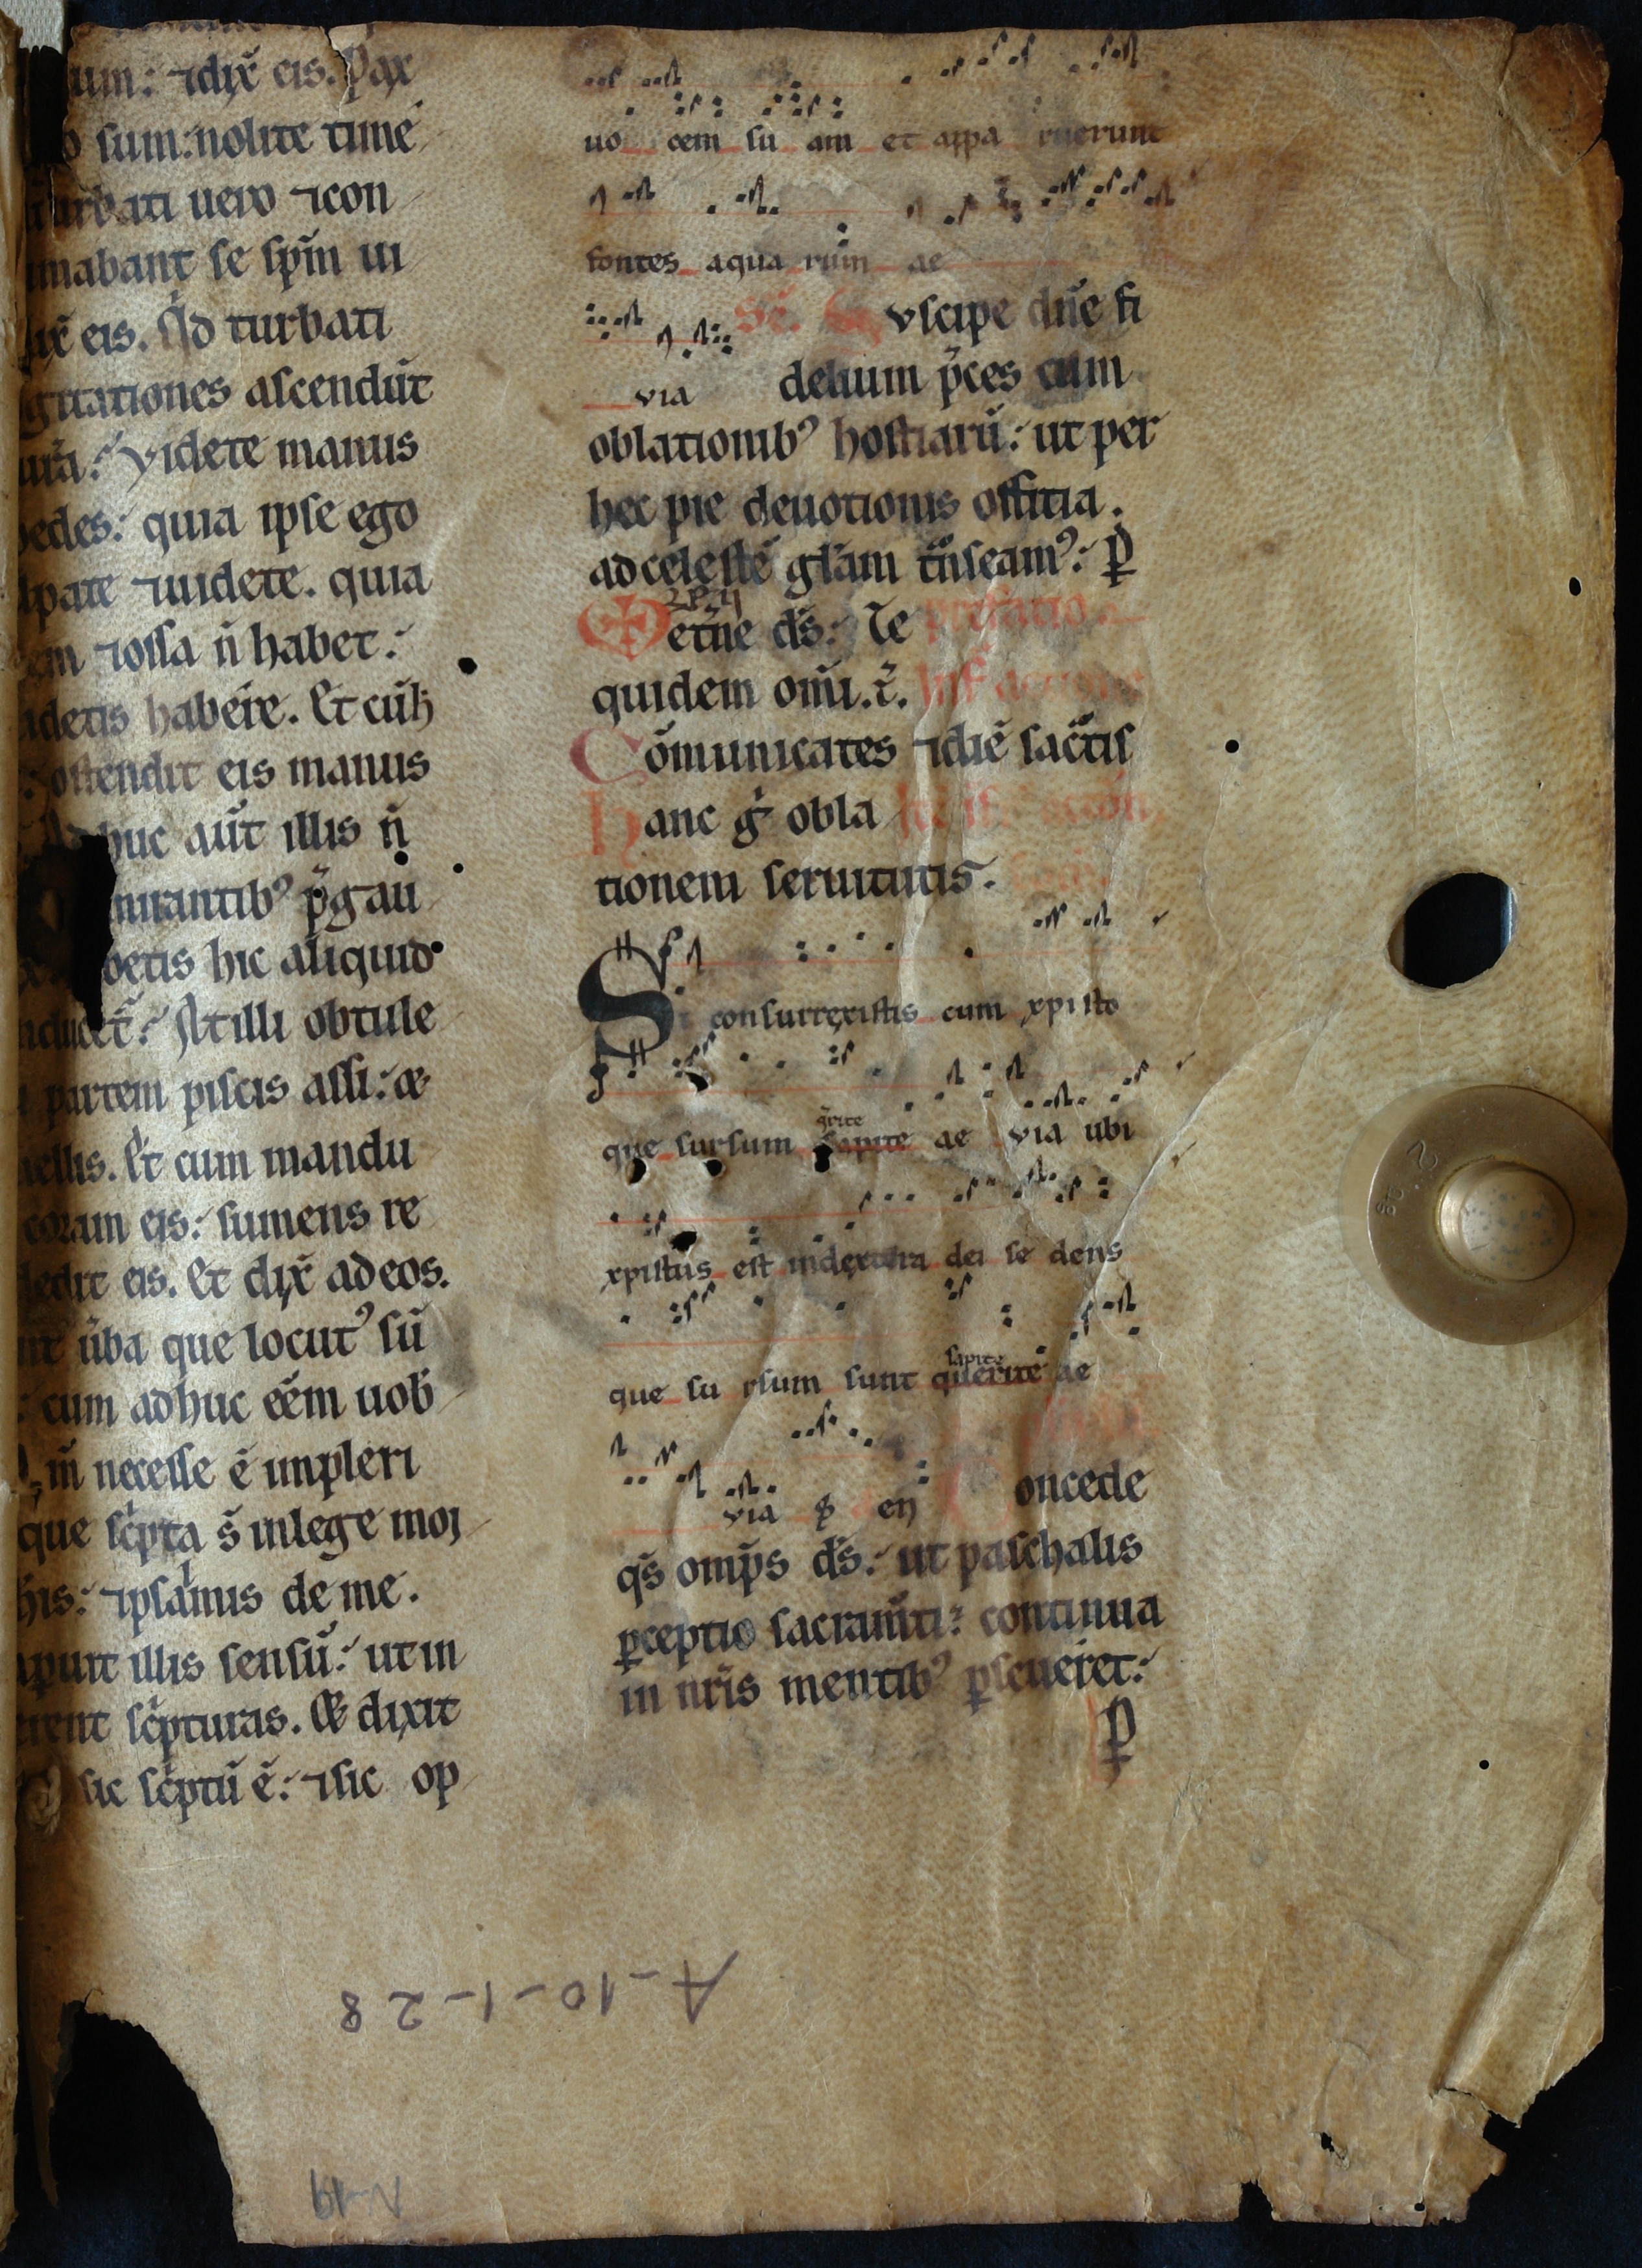 um: ⁊dix̄ eis. Pax
o sum: nolite timé
urbati uero ⁊con
mabant se sp̄m ui
ix̄ eis. Qd turbati
gitationes ascendūt
ur̄a: Videte manus
pedes: quia ipse ego
lpate ⁊uidete. quia
em ⁊ossa n̄ habet:
idetis habere. Et cū h
: ostendit eis manus
Adhuc aūt illis n̄
mirantibꝰ p̄ gau
betis hic aliquid
nducet̄: At illi obtule
partem piscis assi: &
mellis. Et cum mandu
coram eis: sumens re
dedit eis. Et dix̄ ad eos.
nt ūba que locutꝰ sū
: cum adhuc eēm uob̄
m̄ necesse ē impleri
que sc̄pta s̄ inlege moy
his: ⁊psalmis de me.
aperuit illis sensū: ut in
erent sc̄pturas. & dixit
sic sc̄ptū ē: ⁊sic op
uo cem su am et appa ruerunt
fontes aqua rum ae
Sc̄. Suscipe dn̄e fi
via delium p̄ces cum
oblationibꝰ hostiarū: ut per
hec pie deuotionis offitia.
ad celestē gl̄am t̄nseamꝰ: ꝑ
et̄ne ds̄: Te prefatio.
quidem om̄i. t̄. Inf̄ actione
Cōmunicātes ⁊diē sac̄tis
Hanc g̊ obla
tionem seruitutis.
Si consurrexistis cum xpisto
q̄rite
que sursum sapite ae via ubi
xpistus est indextera dei se dens
sapite
que su rsum sunt querite ae
via en Concede
qs̄ omp̄s ds̄: ut paschalis
ꝑceptio sacram̄ti: continua
in nr̄is mentibꝰ ꝑseueret:
ꝑ
A-10-1-28
N-19